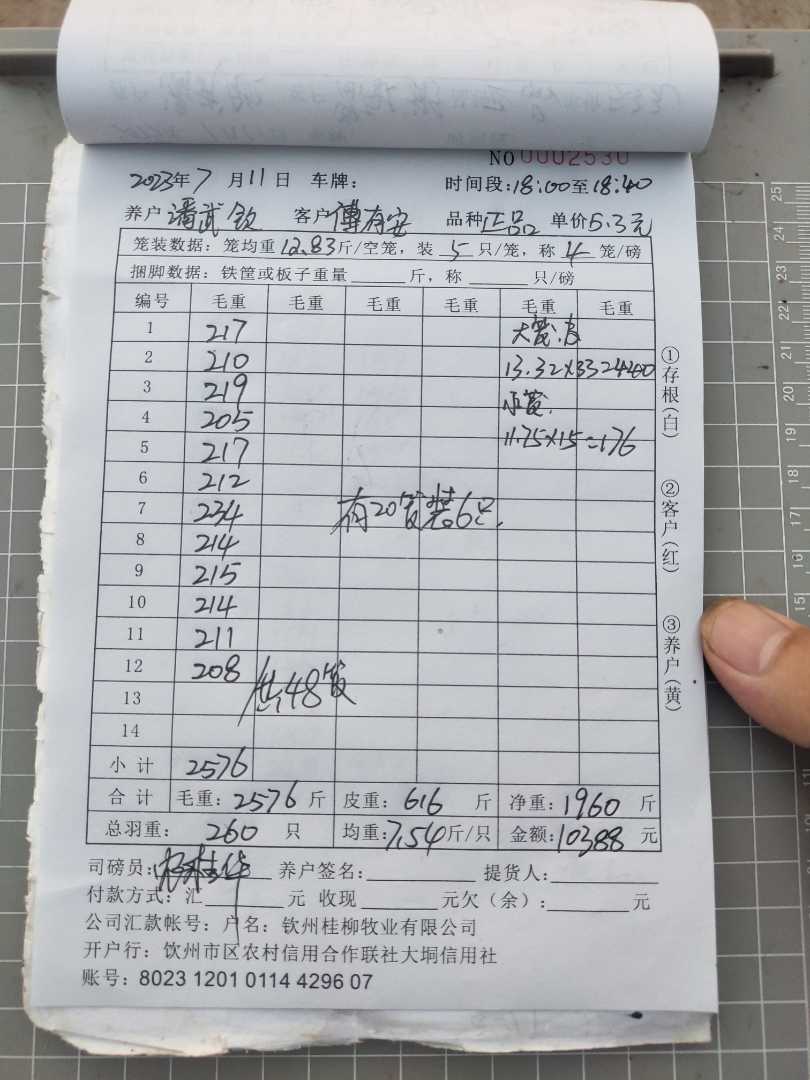 No 0002530
2023年7月11日 车牌: 时间段:18:00至18:40
养户 潘武钦 客户 傅有安 品种 正品 单价 5.3元
笼装数据: 笼均重 12.83 斤/空笼, 装 5 只/笼, 称 4 笼/磅
捆脚数据: 铁筐或板子重量 斤, 称 只/磅
编号 毛重 毛重 毛重 毛重 毛重 毛重
1 217 大笼.
2 210 13.32×33
3 219
4 205
5 217 11.75×15=176
6 212
7 234 有20笼装6只.
8 214
9 215
10 214
11 211
12 208
13 共48笼
14
小计 2576
合计 毛重: 2576 斤 皮重: 616 斤 净重: 1960 斤
总羽重: 260 只 均重: 7.54 斤/只 金额: 10388 元
司磅员: 养户签名: 提货人:
付款方式: 汇 元 收现 元欠(余): 元
公司汇款帐号: 户名: 钦州桂柳牧业有限公司
开户行: 饮州市区农村信用合作联社大垌信用社
账号: 8023 1201 0114 4296 07
①存根(白)
②客户(红)
③养户(黄)
25
24
23
22
21
20
19
18
17
16
15